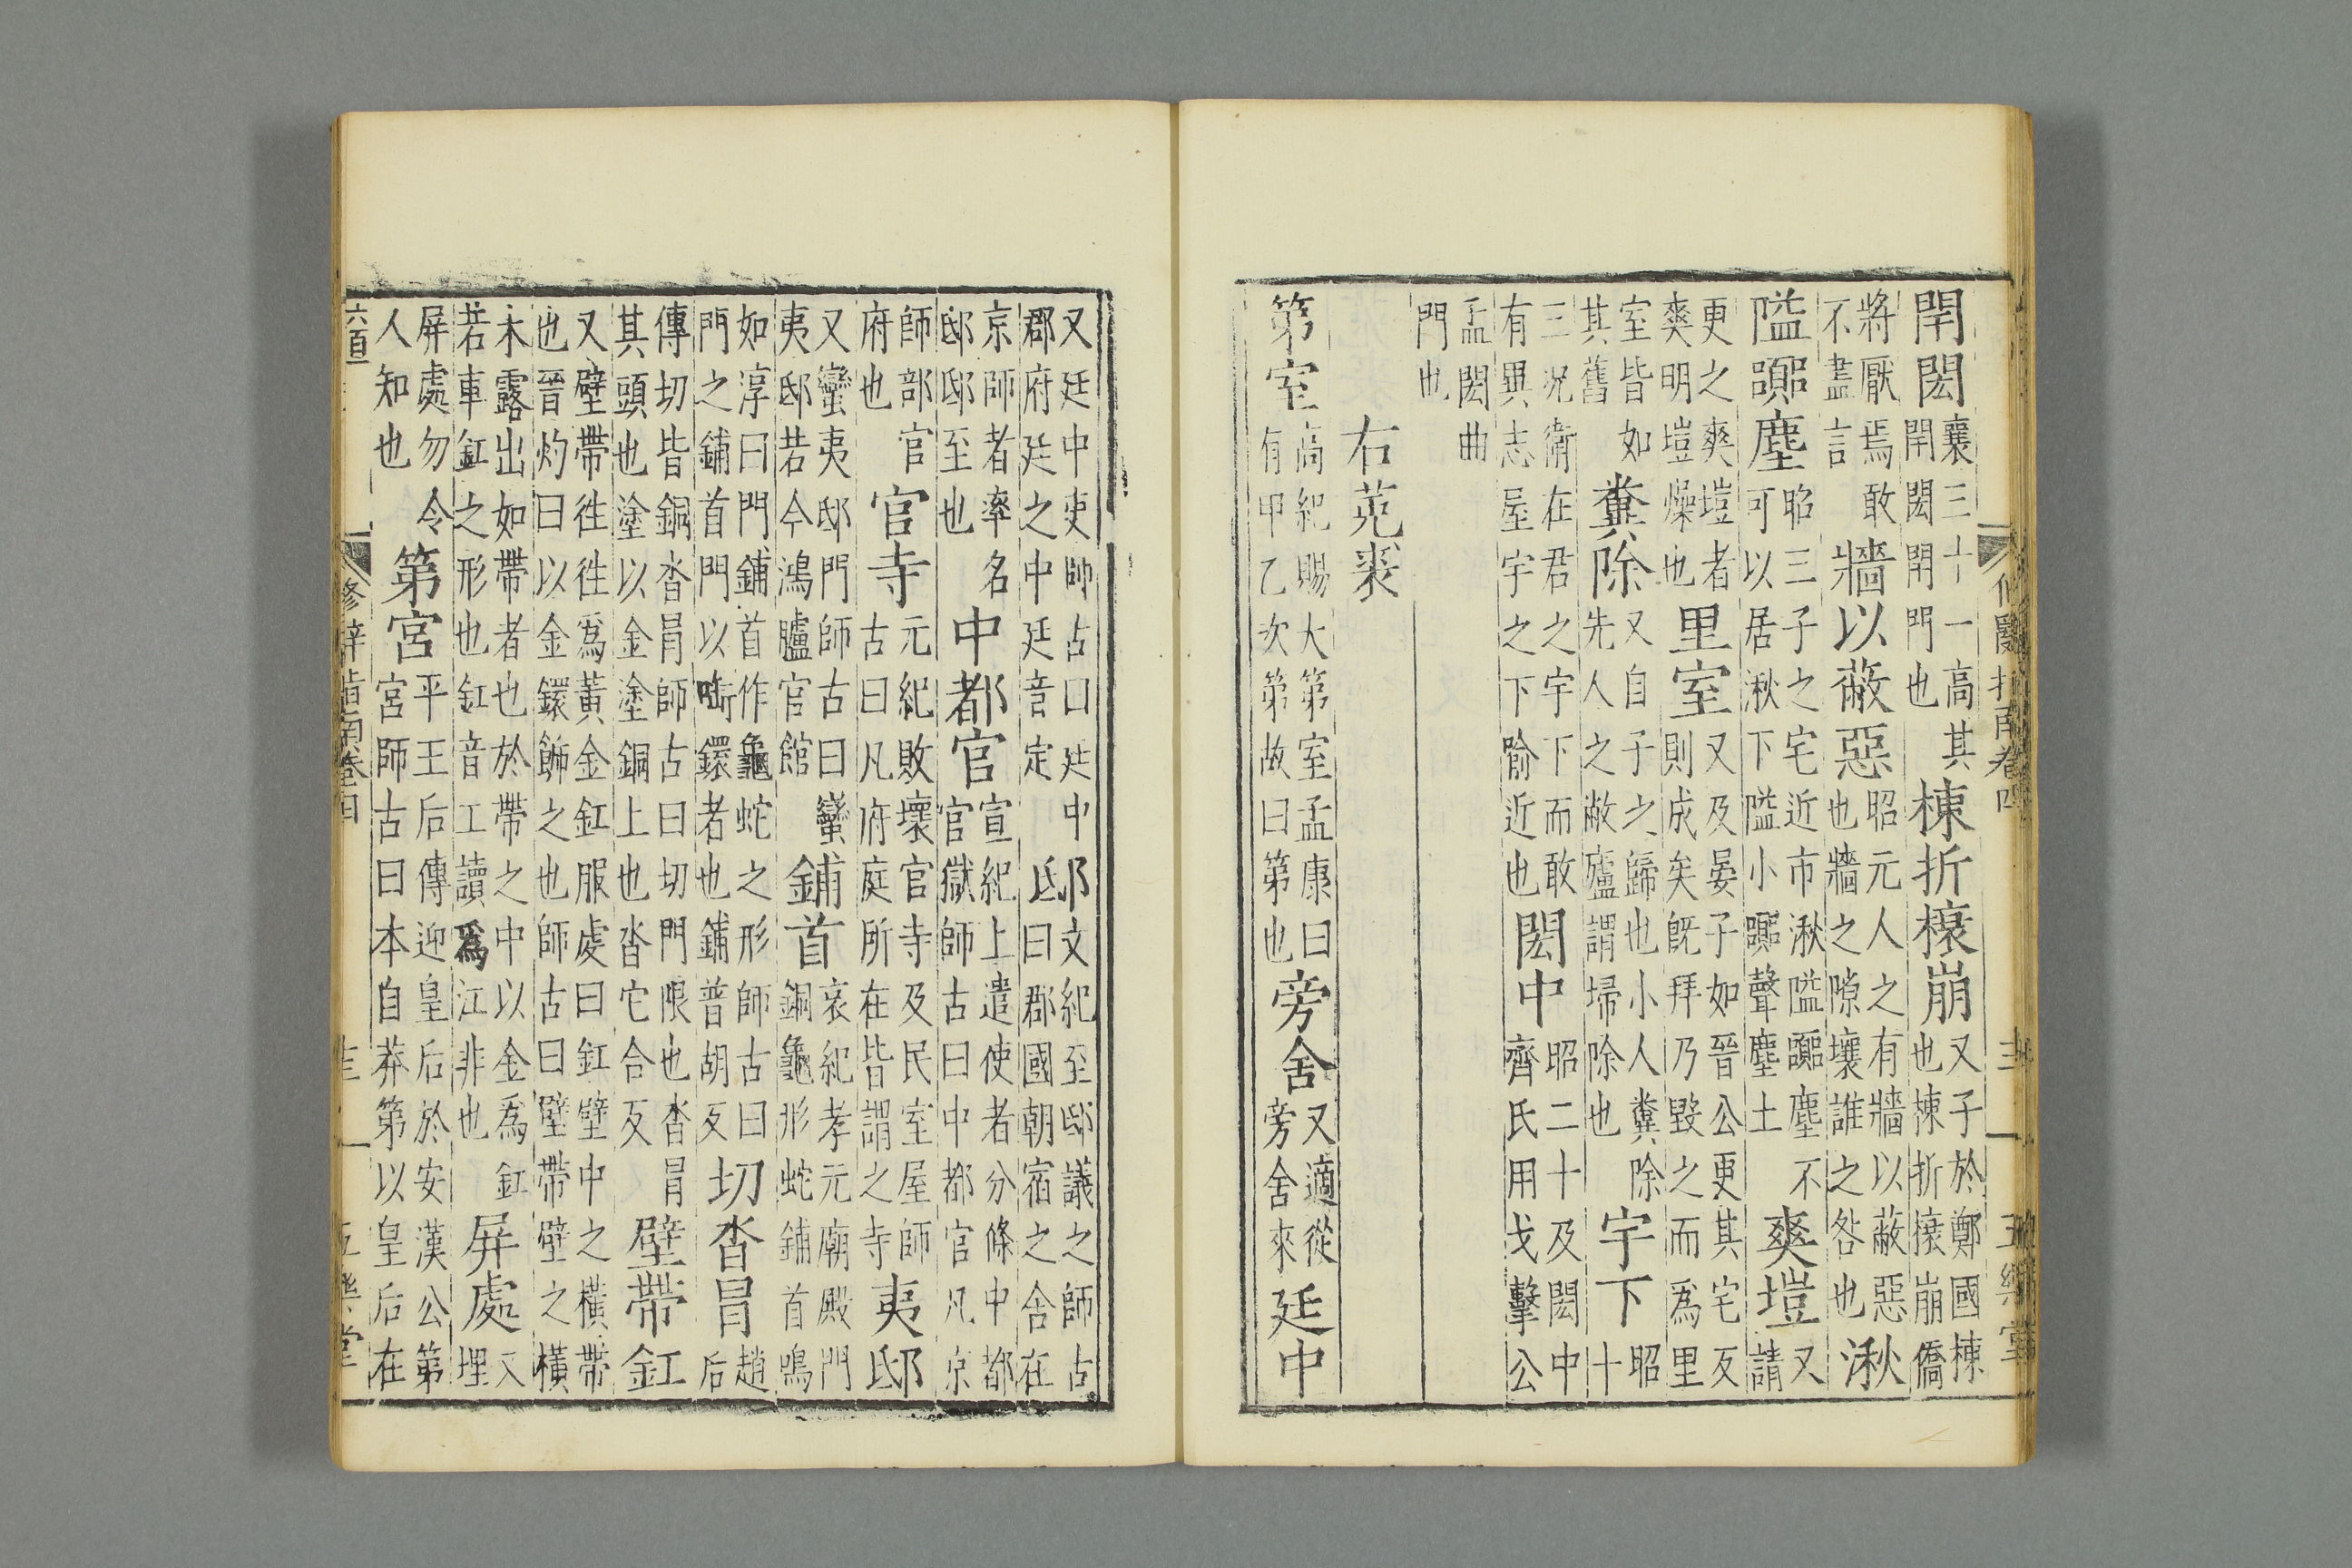 閈閎襄三十一高其閈閎閈門也棟折榱崩又子於鄭國棟也棟折榱崩僑
將厭焉敢不盡言牆以蔽惡昭元人之有牆以蔽惡也牆之隙壞誰之咎也湫
隘囂塵昭三子之宅近市湫隘囂塵不可以居湫下隘小囂聲塵土爽塏又請
更之爽塏者爽明塏燥也里室又及晏子如晉公更其宅反則成矣旣拜乃毀之而爲里
室皆如其舊糞除又自子之歸也小人糞除先人之敝廬謂埽除也宇下昭十
三況衛在君之宇下而敢有異志屋宇之下喻近也閎中昭二十及閎中齊氏用戈擊公
孟閎曲門也
右菟裘
第室高紀賜大第室孟康曰有甲乙次第故曰第也旁舍又適從旁舍來廷中
又廷中吏師古曰廷中郡府廷之中廷音定邸文紀至邸議之師古曰郡國朝宿之舍在
京師者率名邸邸至也中都官宣紀上遣使者分條中都官獄師古曰中都官凡京
師部官府也官寺元紀敗壞官寺及民室屋師古曰凡府庭所在皆謂之寺夷邸
又蠻夷邸門師古曰蠻夷邸若今鴻臚官館鋪首哀紀孝元廟殿門銅龜形蛇鋪首鳴
如淳曰門鋪首作龜蛇之形師古曰門之鋪首門以啣鐶者也鋪普胡反切沓冒趙后
傳切皆銅沓冒師古曰切門限也沓冒其頭也塗以金塗銅上也沓它合反壁帶釭
又壁帶往往爲黃金釭服虔曰釭壁中之橫帶也晉灼曰以金鐶飾之也師古曰壁帶壁之橫
木露出如帶者也於帶之中以金爲釭若車釭之形也釭音工讀爲江非也屏處又埋
屏處勿令人知也第宮平王后傳迎皇后於安漢公第宮師古曰本自莽第以皇后在
修辭指南卷四